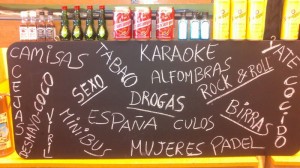 CAMISAS
TABACO
KARAOKE
YATE
CEJAS
COCO
SEXO
ALFOMBRAS
ROCK & ROLL
COCIDO
DROGAS
DESMAYO
VINIL
MINIBUS
ESPAÑA
CULOS
BIRRAS
MUJERES
PADEL